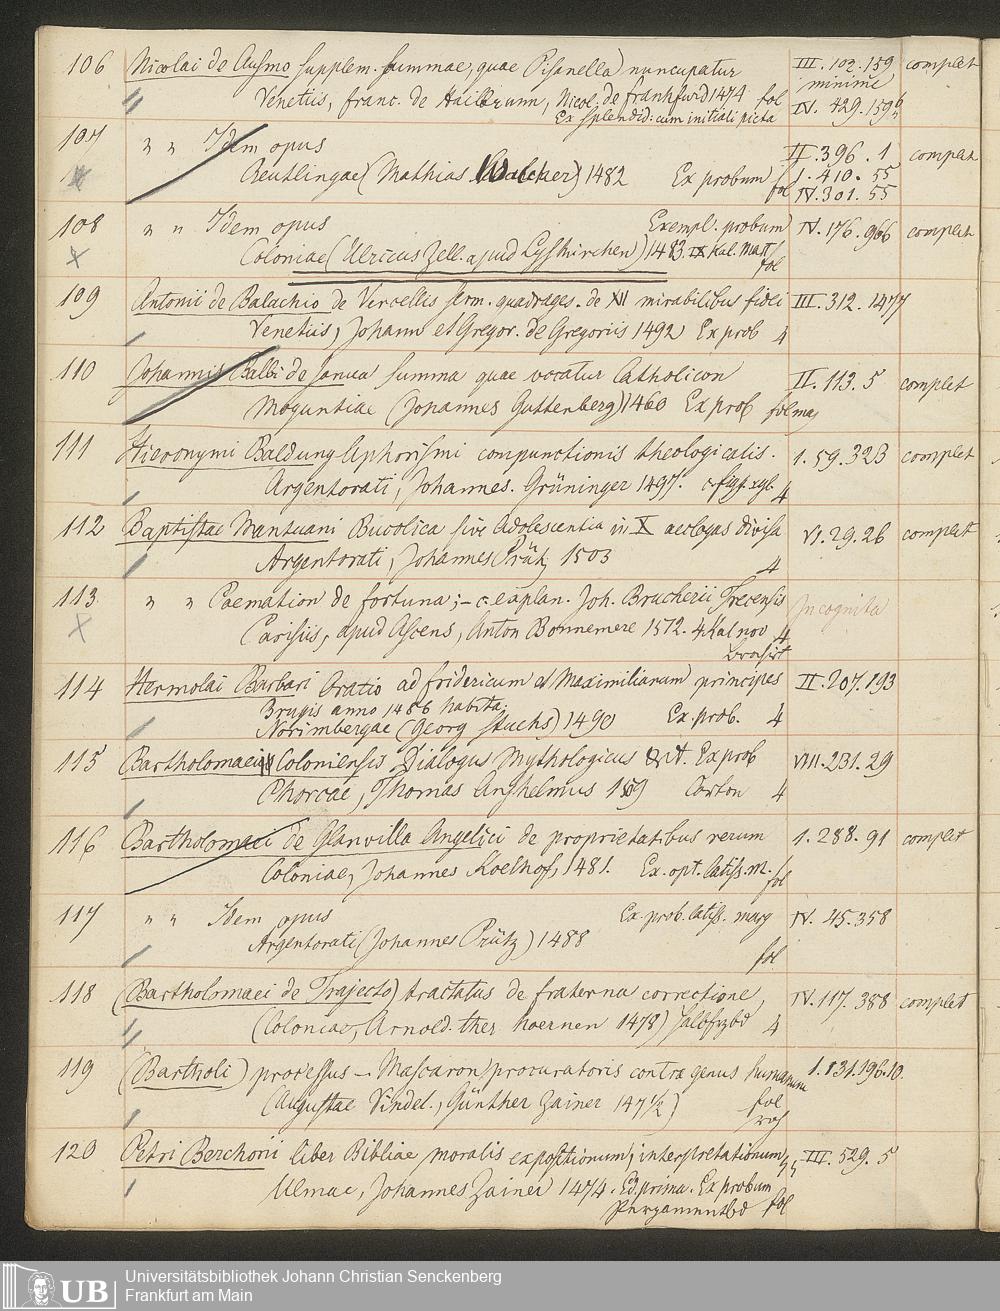 106 Nicolai de Ausmo supplem. summae, quae Pisanella nuncupatur III. 102. 159 complet
minime
Venetiis, Franc. de Hailbrunn, Nicol. de frankfurd 1474 fol IV. 429. 159
Ex splendid: cum initiali picta
107 " " Idem opus II. 396. 1 complet
Reutlingae (Mathias 1482 Ex probum fol 1. 410. 55
IV. 301. 55
108 " " Idem opus Exempl. probum IV. 176. 966 complet
Coloniae (Ulricus Zell. apud Lyskirchen) 1483. IX Kal. Matf fol
109 Antonii de Balachio de Vercellis serm. quadrages. de XII mirabilibus fidei III. 312. 1477
Venetiis, Johann et Gregor. de Gregoriis 1492 Ex prob 4
110 Johannis Balbi de Janua summa quae vocatur Catholicon II. 113. 5 complet
Moguntiae (Johannes Guttenberg) 1460 Ex prob fol maj
111 Hieronymi Baldung Aphorismi compunctionis theologicalis. 1. 59. 323 complet
Argentorati, Johannes. Grüninger 1497. c. figg. xyl. 4
112 Baptistae Mantuani Bucolica sive Adolescentia in X aeclogas divisa VI. 29. 26 complett
Argentorati, Johannes Prütz 1503 4
113 " " Poemation de fortuna; – c. explan. Joh. Brucherii Trecensis Incognita
Parisiis, apud Ascens, Anton Bonnemere 1512. 4 Kal nov 4
brochirt
114 Hermolai Barbari Oratio ad fridericum et Maximilianum principes II. 207. 193
Brugis anno 1486 habita.
Norimbergae (Georg Stuchs) 1490 Ex prob. 4
115 Bartholomaei Coloniensis Dialogus Mythologicus Ex prob VIII. 231. 29
Phorcae, Thomas Anshelmus Carton 4
116 Bartholomaei de Glanvilla Angelici de proprietatibus rerum 1. 288. 91 complet
Coloniae, Johannes Koelhof, 1481. Ex. opt. latiss. m. fol
117 " " Idem opus Ex. prob. latiss. marg IV. 45. 358
Argentorati (Johannes Prütz) 1488 fol
118 (Bartholomaei de Trajecto) tractatus de fraterna correctione, IV. 117. 388 complet
(Coloniae, Arnold. ther hoernen 1478) halbfrzbd 4
119 (Bartholi) processus – Mascaron procuratoris contra genus humanum 1. 131. 196. 10
(Augustae Vindel., Günther Zainer 147½) fol
120 Petri Berchorii liber Bibliae moralis expositionum, interpretationumqs III. 529. 5
Ulmae, Johannes Zainer 1474. Ed. prima. Ex probum
Pergamentbd fol
UB
Universitätsbibliothek Johann Christian Senckenberg
Frankfurt am Main